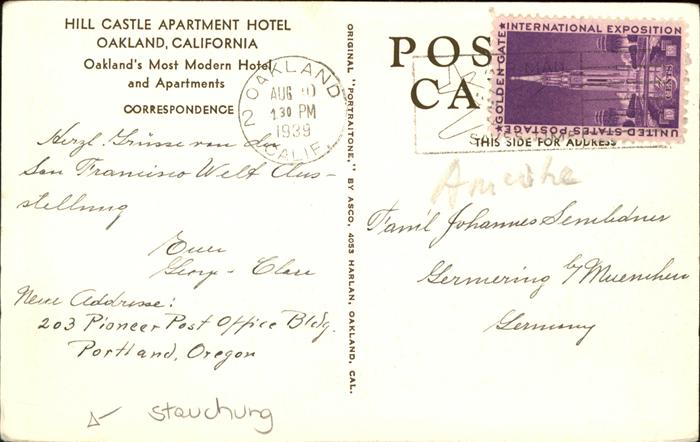 HILL CASTLE APARTMENT HOTEL
OAKLAND, CALIFORNIA
Oakland's Most Modern Hotel
and Apartments
CORRESPONDENCE
Herzl. Grüsse von der
San Francisco Welt Aus-
stellung
Euer
Georg - Clare
Neue Addresse:
203 Pioneer Post Office Bldg.
Portland, Oregon
Stauchung
OAKLAND
2
AUG
1 30 PM
1939
CALIF.
ORIGINAL "PORTRAITONE," BY ASCO, 4053 HARLAN, OAKLAND, CAL.
POS
CA
THIS SIDE FOR ADDRESS
GOLDEN GATE INTERNATIONAL EXPOSITION
1939
UNITED STATES POSTAGE
Amerika
Famil Johannes
Germering b/Muenchen
Germany